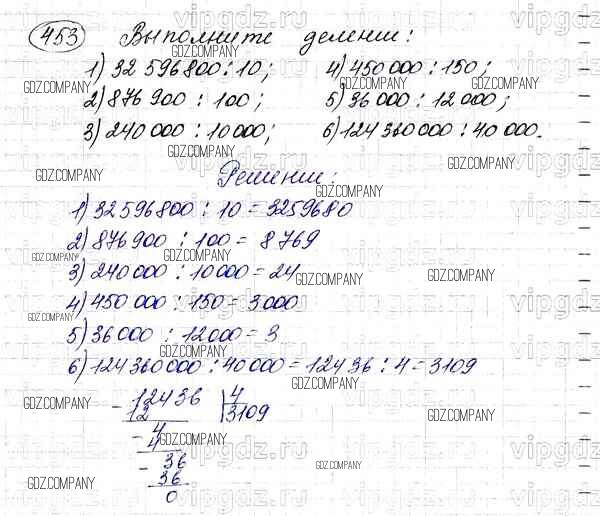 453 Выполните деление:
1) 32 596 800 : 10; 4) 450 000 : 150;
2) 876 900 : 100; 5) 36 000 : 12 000;
3) 240 000 : 10 000; 6) 124 360 000 : 40 000.
Решение:
1) 32 596 800 : 10 = 3259680
2) 876 900 : 100 = 8 769
3) 240 000 : 10 000 = 24
4) 450 000 : 150 = 3000
5) 36 000 : 12 000 = 3
6) 124 360 000 : 40 000 = 12436 : 4 = 3109
- 12436 | 4
12 | 3109
- 4
4
- 36
36
0
GDZ.COMPANY
vipgdz.ru